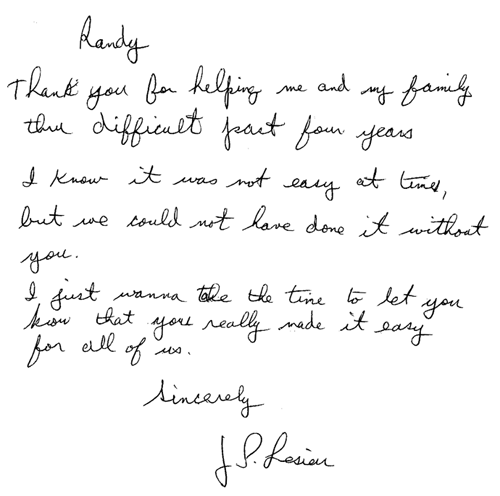 Randy
Thank you for helping me and my family
thru difficult part four years
I know it was not easy at times,
but we could not have done it without
you.
I just wanna take the time to let you
know that you really made it easy
for all of us.
Sincerely
J P.